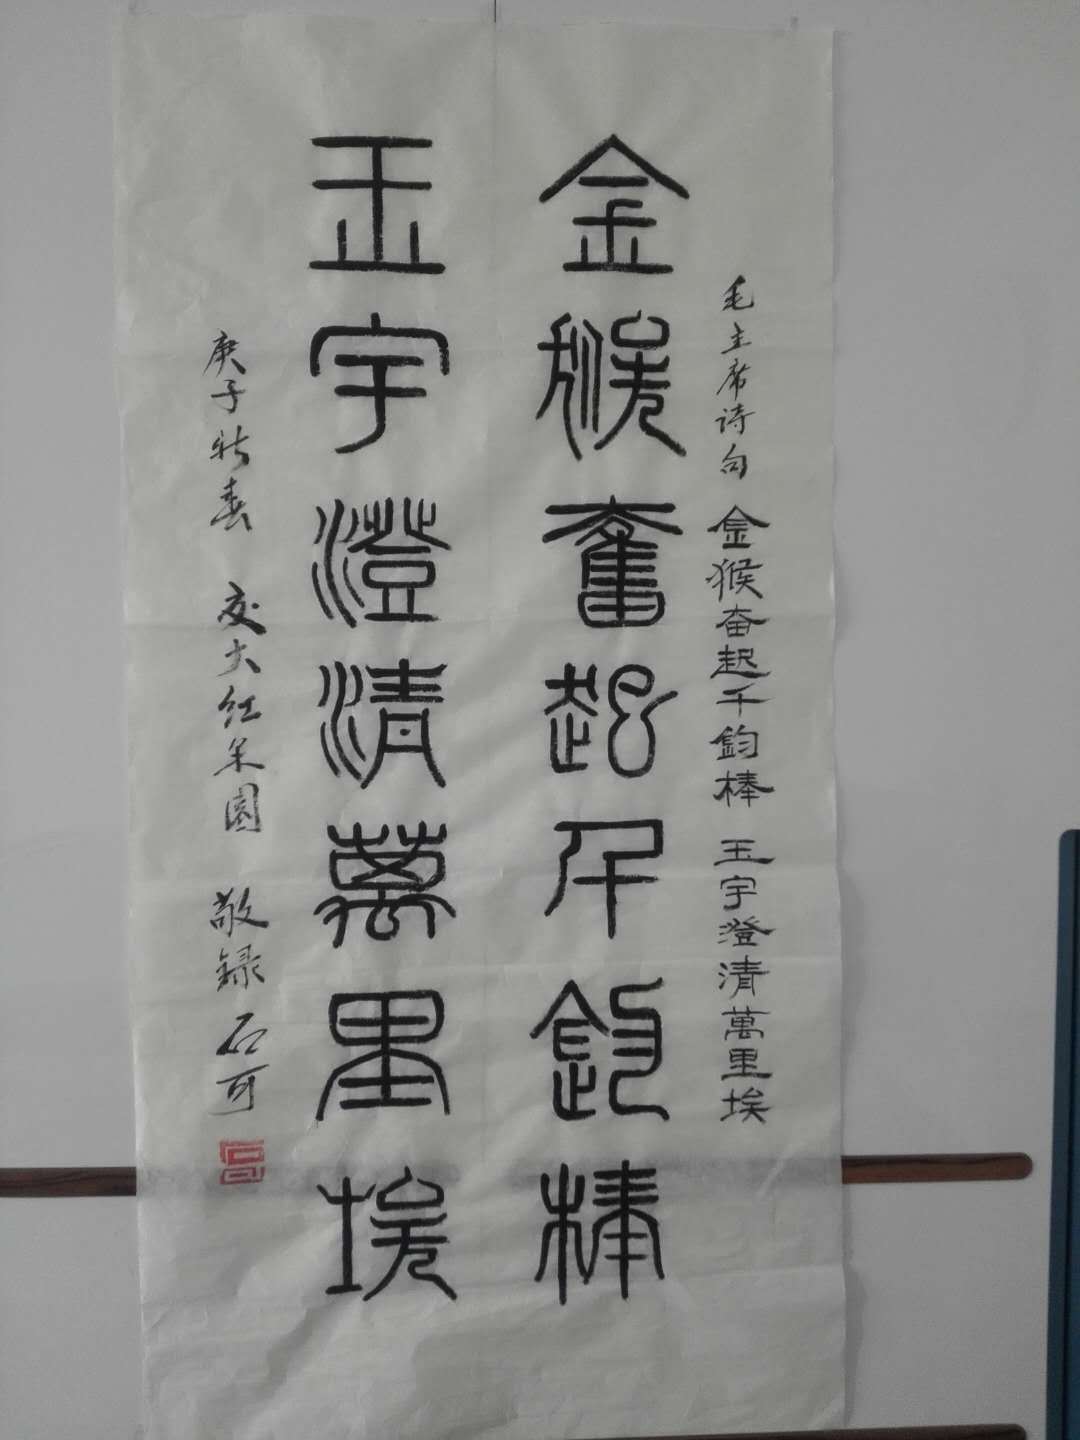 毛主席诗句 金猴奋起千鈞棒 玉宇澄清萬里埃
金猴奮起千鈞棒
玉宇澄清萬里埃
庚子新春 交大红果园 敬録 石可